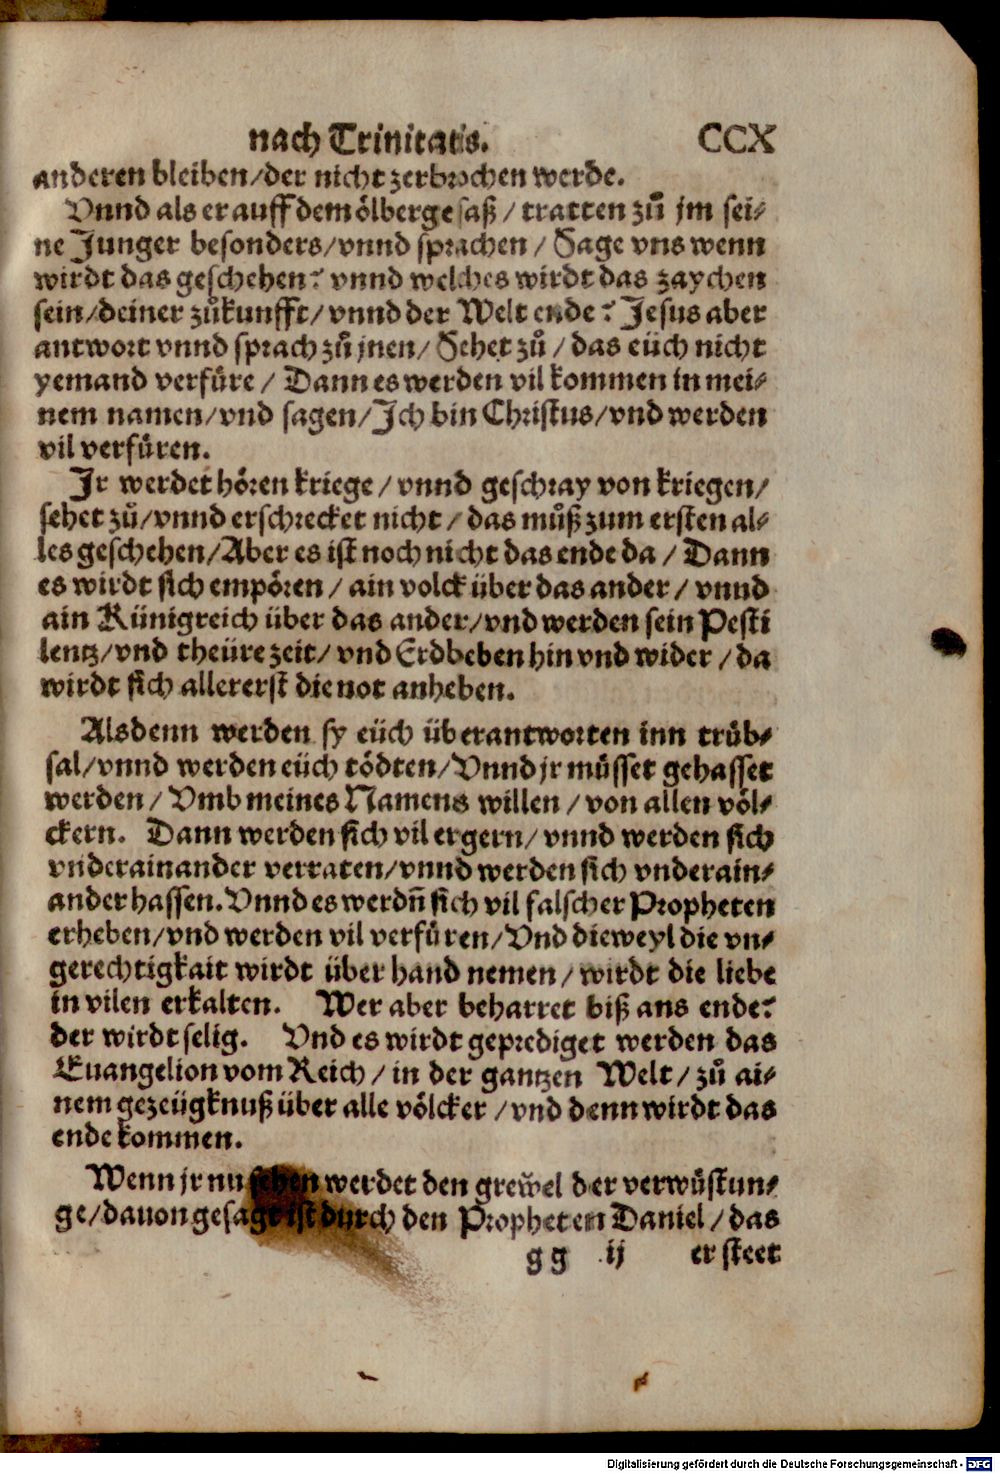 nach Trinitatis. CCX
anderen bleiben/der nicht zerbrochen werde.
Vnnd als er auff dem ölberge saß / tratten zů jm sei⸗
ne Junger besonders/vnnd sprachen / Sage vns wenn
wirdt das geschehen? vnnd welches wirdt das zaychen
sein/deiner zůkunfft/vnnd der Welt ende? Jesus aber
antwort vnnd sprach zů jnen/ Sehet zů / das eüch nicht
yemand verfüre / Dann es werden vil kommen in mei⸗
nem namen/vnd sagen/Jch bin Christus/vnd werden
vil verfüren.
Jr werdet hören kriege / vnnd geschray von kriegen/
sehet zů/vnnd erschrecket nicht / das můß zum ersten al⸗
les geschehen/Aber es ist noch nicht das ende da / Dann
es wirdt sich empören / ain volck über das ander / vnnd
ain Künigreich über das ander/vnd werden sein Pesti
lentz/vnd theüre zeit/ vnd Erdbeben hin vnd wider / da
wirdt sich allererst die not anheben.
Alsdenn werden sy eüch überantworten inn trüb⸗
sal/vnnd werden eüch tödten/Vnnd jr müsset gehasset
werden / Vmb meines Namens willen / von allen völ⸗
ckern. Dann werden sich vil ergern/ vnnd werden sich
vnderainander verraten/vnnd werden sich vnderain⸗
ander hassen. Vnnd es werdn̄ sich vil falscher Propheten
erheben/vnd werden vil verfüren/Vnd dieweyl die vn⸗
gerechtigkait wirdt über hand nemen / wirdt die liebe
in vilen erkalten. Wer aber beharret biß ans ende?
der wirdt selig. Vnd es wirdt geprediget werden das
Euangelion vom Reich / in der gantzen Welt / zů ai⸗
nem gezeügknuß über alle völcker / vnd denn wirdt das
ende kommen.
Wenn jr nu sehen werdet den grewel der verwüstun⸗
ge/dauon gesagt ist durch den Propheten Daniel / das
gg ij er steet
Digitalisierung gefördert durch die Deutsche Forschungsgemeinschaft - DFG